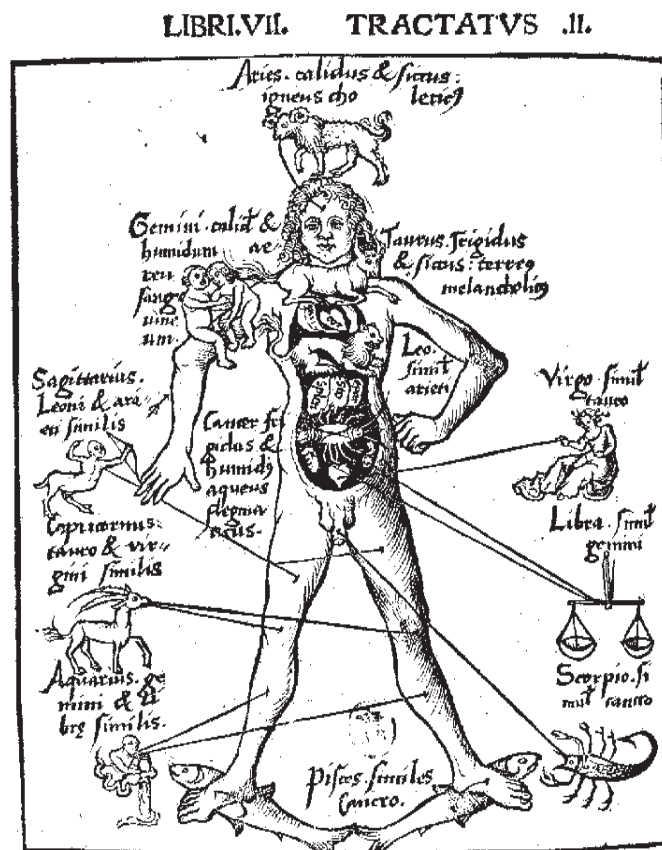 LIBRI.VII. TRACTATVS .II.
Aries. calidus & siccus:
igneus cho lericꝰ
Gemini. calid̄ &
humidum ae
reu
sang
uine
um.
Taurus. frigidus
& siccus: terreꝰ
melancholicꝰ
Leo.
simil̄
arieti
Sagittarius.
Leoni & ari
eti similis
Cancer fri
gidus &
humidꝰ
aqueus
flegma
ticus.
Virgo. simil̄
tauro
Capricornus:
tauro & vir-
gini similis
Libra. simil̄
gemini
Aquarius. ge
mini & li
brę similis.
Scorpio. si
mil̄ cancro
Pisces. similes
Cancro.